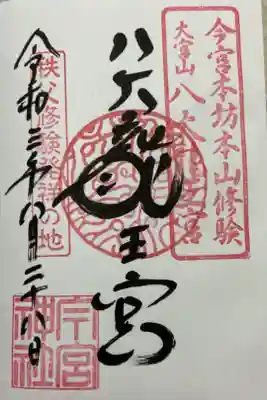 今宮本坊本山修験
大宮山 八大龍王宮
八大龍王宮
秩父修験発祥の地
令和三年八月二十八日
今宮神社